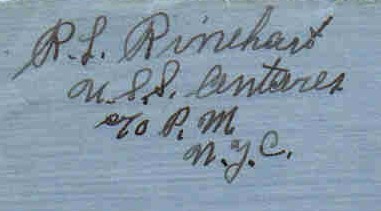 R. L. Rinehart
U.S.S. Antares
c/o P. M
N.Y.C.